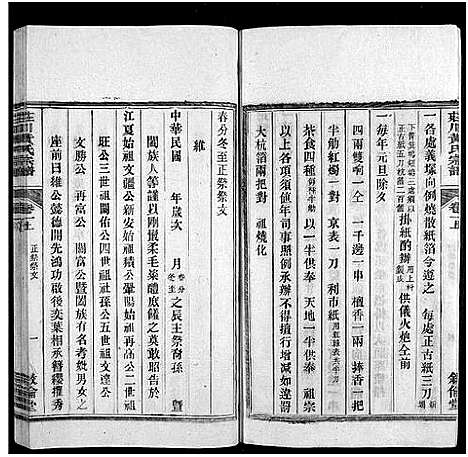 莊川黃氏宗譜
一各處義塚向例燒散紙箔今遵之 每處正古紙三刀
掛紙酌辦 供儀火炮全前
一每年元旦除夕
四兩雙响一全 一千邊一串 檀香一兩 捧香一封
半觔紅燭一對 京表一刀 利市紙
茶食四包 天地一半供奉 祖宗一半供奉
以上各項須值年司事照例承辦不得擅行增減如違公罰
大杭箔兩把對 祖燒化
敘倫堂
春分冬至正祭祭文
維
中華民國 年歲次 月 春分冬至 之辰主祭裔孫 暨
闔族人等謹以剛鬣柔毛粢體庶饈之奠敢昭告於
江夏始祖文疆公新安始祖積公羣陽始祖再高公二世祖
珏公三世祖閣佑公四世祖祖孫公五世祖文達公
文勝公 再富公 閣富公暨闔族有名考妣男女之
座前曰維公懿德開先鴻功啟後奕葉相承簪纓擢秀
莊川黃氏宗譜
正祭祭文
一
敘倫堂